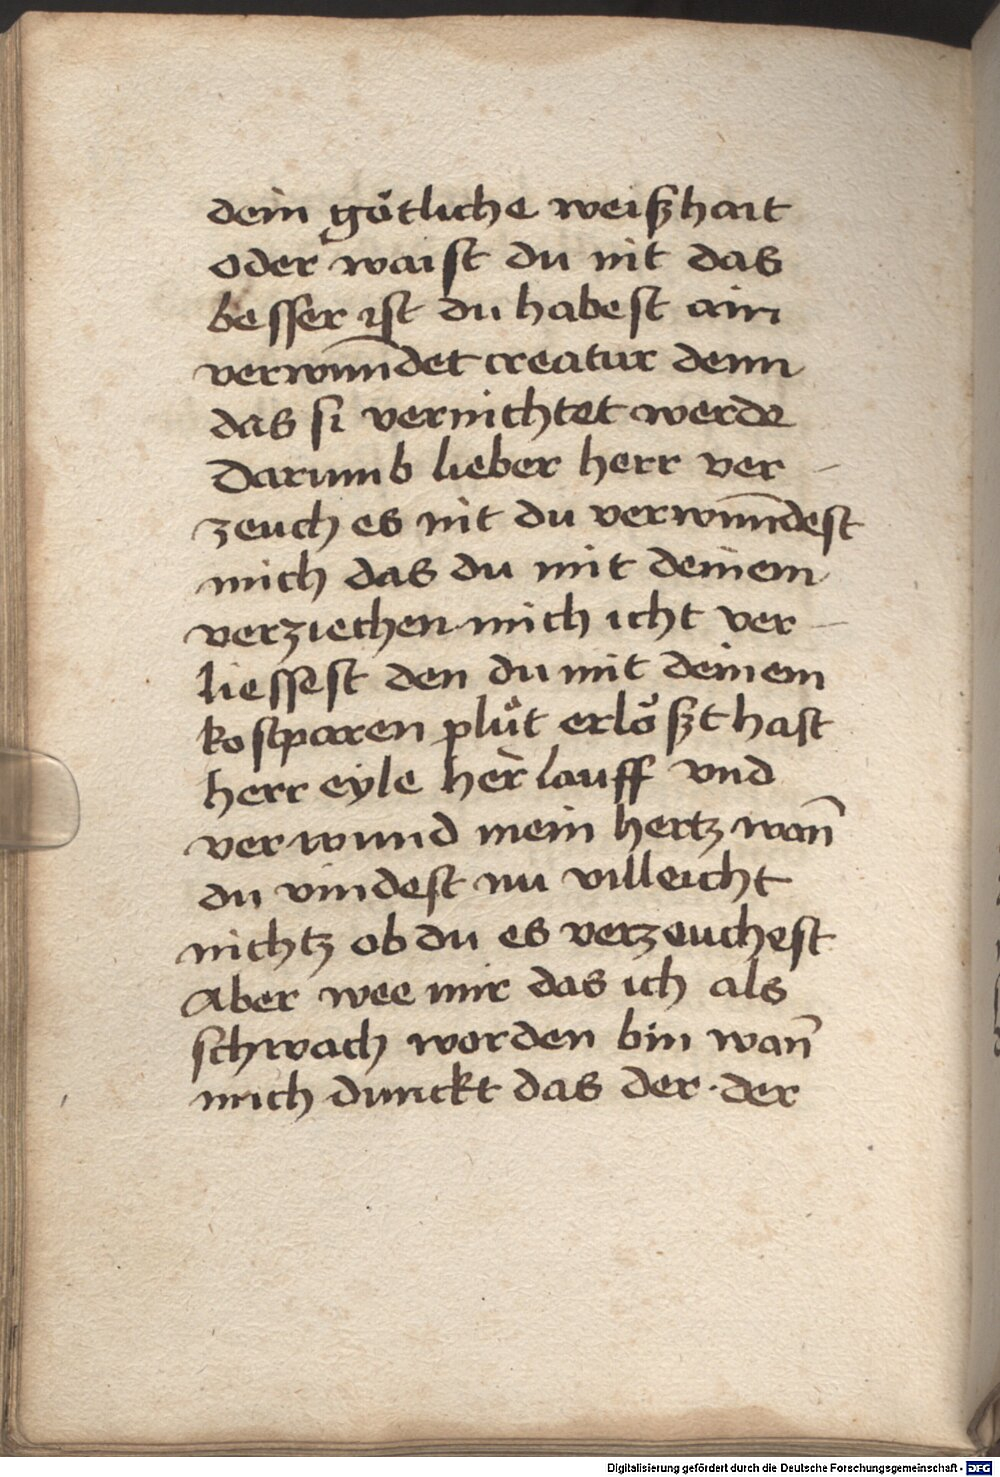 dein götliche weiszhait
oder waist du nit das
besser ist du habest ain
verwun̄det creatur denn
das si vernichtet werde
Darumb lieber herr ver
zeuch es nit du verwun̄dest
mich das du mit deinem
verziechen mich icht ver
liessest den du mit deinem
kostparen plůt erlöszt hast
herr eyle her lauff vnd
verwund mein hertz wan̄
du vindest nu villeicht
nichtz ob du es verzeuchest
Aber wee mir das ich als
schwach worden bin wan̄
mich dunckt das der · der
Digitalisierung gefördert durch die Deutsche Forschungsgemeinschaft - DFG